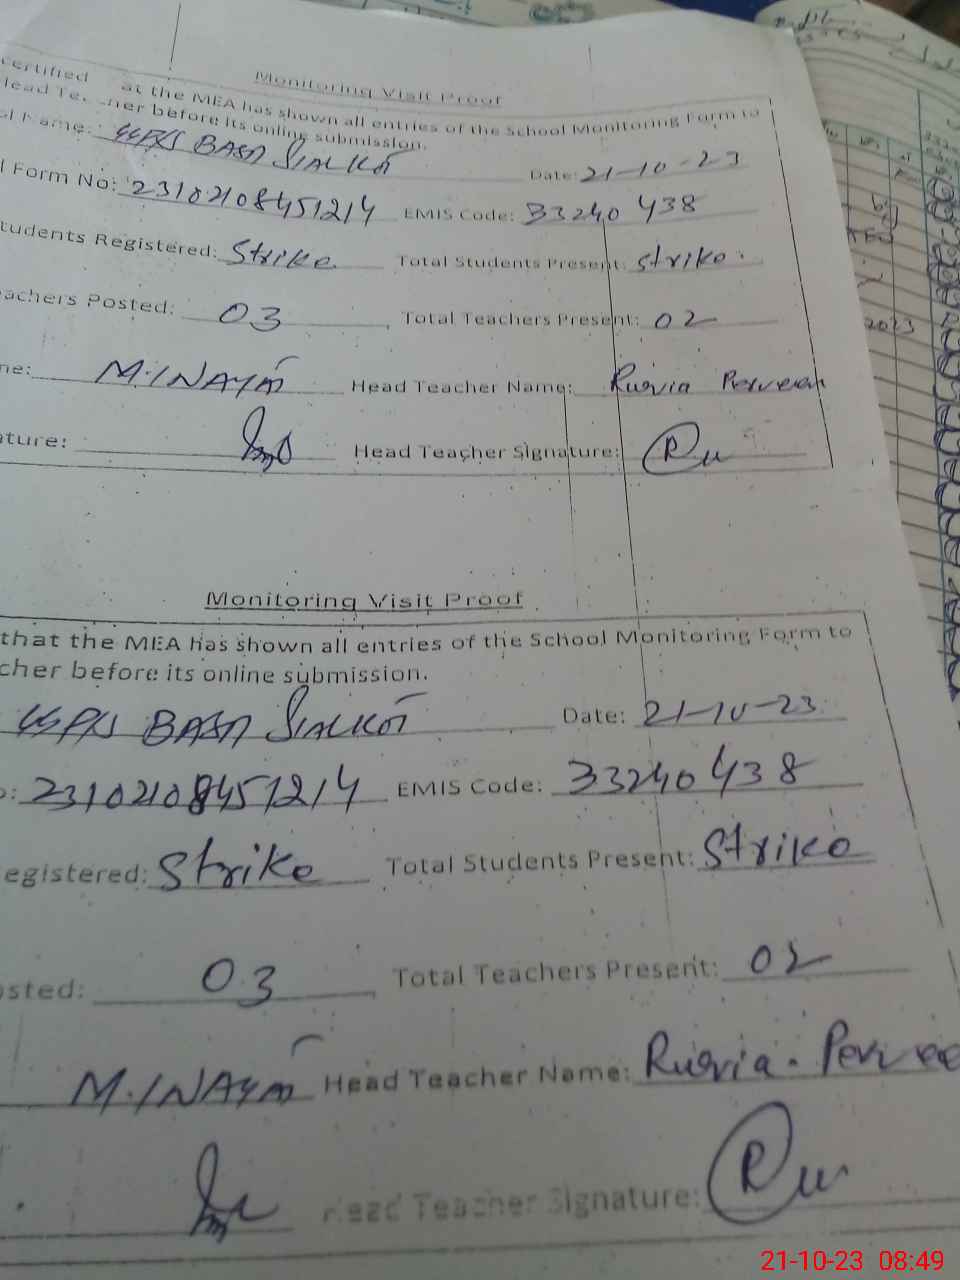 Monitoring Visit Proof
certified at the MEA has shown all entries of the School Monitoring Form to
before its online submission.
Name: GGPS BASA SIALKOT Date: 21-10-23
Form No: 23102108451214 EMIS Code: 33240438
tudents Registered: Strike Total Students Present: Strike
eachers Posted: 03 Total Teachers Present: 02
me: M. INAYAT Head Teacher Name: Perveen
ature: Head Teacher Signature:
Monitoring Visit Proof
that the MEA has shown all entries of the School Monitoring Form to
cher before its online submission.
GGPS BASA SIALKOT Date: 21-10-23
o: 23102108451214 EMIS Code: 33240438
egistered: Strike Total Students Present: Strike
osted: 03 Total Teachers Present: 02
M. INAYAT Head Teacher Name: Pervee
Head Teacher Signature:
2023
21-10-23 08:49